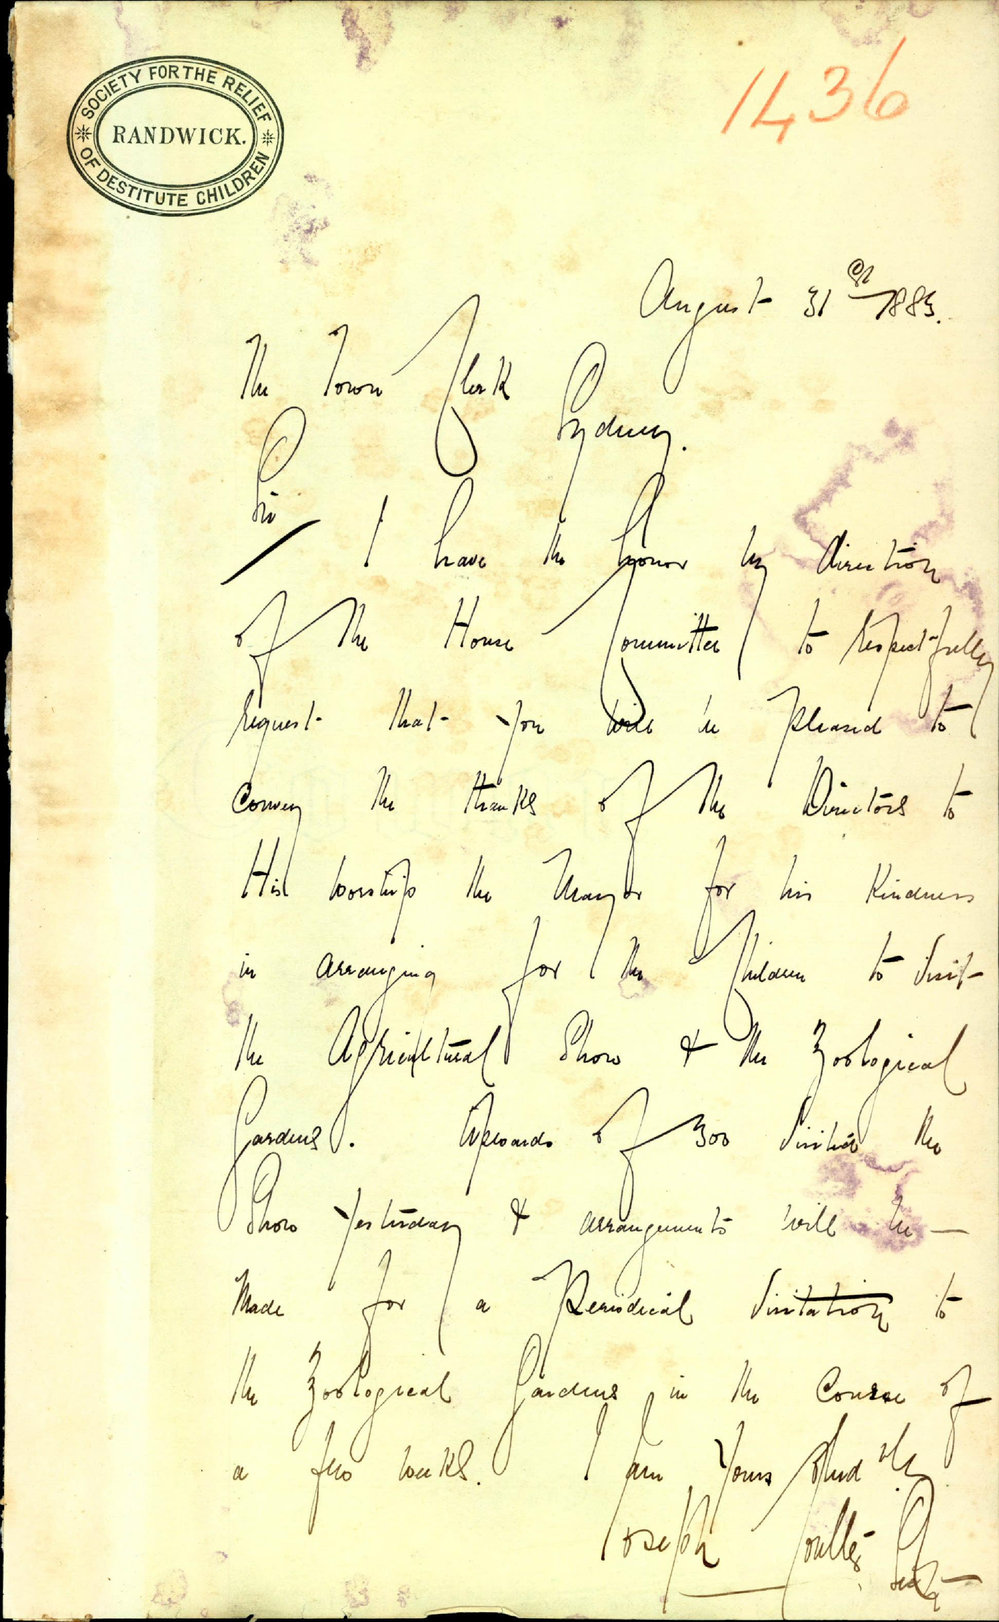 SOCIETY FOR THE RELIEF
OF DESTITUTE CHILDREN
RANDWICK.
1436
August 31st 1883.
The Town Clerk
Sydney.
Sir
I have the honor by direction
of the House Committee to respectfully
request that you will be pleased to
convey the thanks of the Directors to
His Worship the Mayor for his Kindness
in arranging for the Children to visit
the Agricultural Show & the Zoological
Gardens. Upwards of 300 visited the
Show yesterday & arrangements will be
Made for a Periodical Visitation to
the Zoological Gardens in the Course of
a few weeks. I am Yours
Joseph Coulter